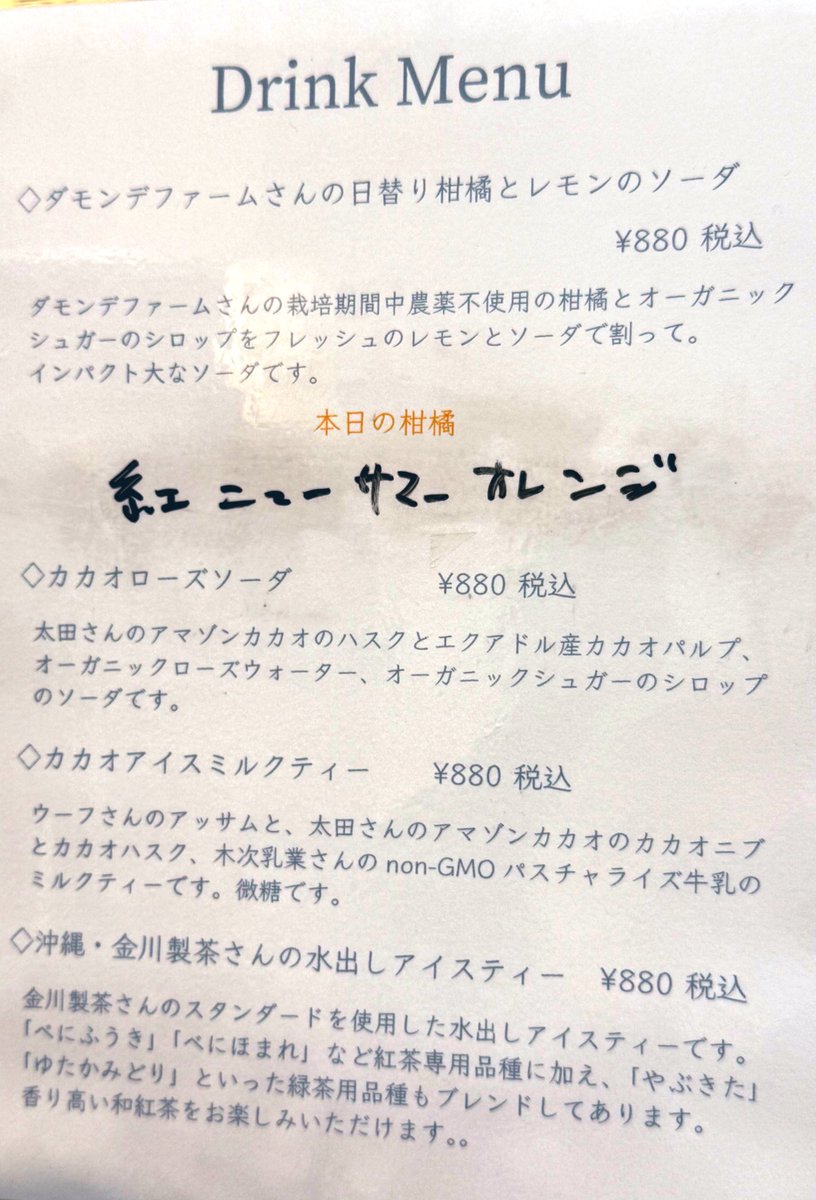 Drink Menu
◇ダモンデファームさんの日替り柑橘とレモンのソーダ
¥880 税込
ダモンデファームさんの栽培期間中農薬不使用の柑橘とオーガニック
シュガーのシロップをフレッシュのレモンとソーダで割って。
インパクト大なソーダです。
本日の柑橘
紅ニューサマーオレンジ
◇カカオローズソーダ ¥880 税込
太田さんのアマゾンカカオのハスクとエクアドル産カカオパルプ、
オーガニックローズウォーター、オーガニックシュガーのシロップ
のソーダです。
◇カカオアイスミルクティー ¥880 税込
ウーフさんのアッサムと、太田さんのアマゾンカカオのカカオニブ
とカカオハスク、木次乳業さんの non-GMO パスチャライズ牛乳の
ミルクティーです。微糖です。
◇沖縄・金川製茶さんの水出しアイスティー ¥880 税込
金川製茶さんのスタンダードを使用した水出しアイスティーです。
「べにふうき」「べにほまれ」など紅茶専用品種に加え、「やぶきた」
「ゆたかみどり」といった緑茶用品種もブレンドしてあります。
香り高い和紅茶をお楽しみいただけます。。